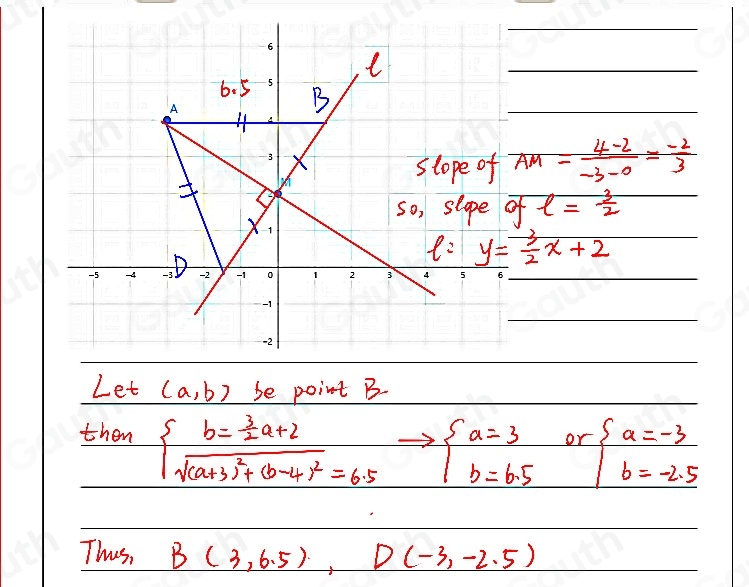 6
l
6.5
5
B
A
4
3
slope of AM = \frac{4-2}{-3-0} = \frac{-2}{3}
M
2
so, slope of l = \frac{3}{2}
1
l: y = \frac{3}{2}x + 2
D
-5 -4 -3 -2 -1 0 1 2 3 4 5 6
-1
-2
Let (a,b) be point B
then { b = \frac{3}{2}a+2 → { a = 3 or { a = -3
\sqrt{(a+3)^2+(b-4)^2} = 6.5 b = 6.5 b = -2.5
Thus, B (3, 6.5), D(-3, -2.5)
Gauth